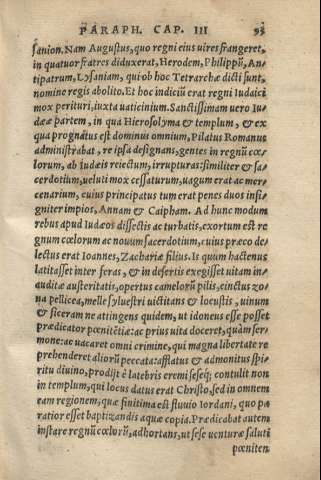 PARAPH. CAP. III 93
sanion. Nam Augustus, quo regni eius vires frangeret,
in quatuor fratres diduxerat, Herodem, Philippū, An-
tipatrum, Lysaniam, qui ob hoc Tetrarchæ dicti sunt,
nomine regis abolito. Et hoc indiciū erat regni Iudaici
mox perituri, iuxta uaticinium. Sanctissimam uero Iu-
dææ partem, in qua Hierosolyma & templum, & ex
qua prognatus est dominus omnium, Pilatus Romanus
administrabat, re ipsa designans, gentes in regnū cœ-
lorum, ab Iudæis reiectum, irrupturas: similiter & sa-
cerdotium, ueluti mox cessaturum, uagum erat ac mer-
cenarium, cuius principatus tum erat penes duos insi-
gniter impios, Annam & Caipham. Ad hunc modum
rebus apud Iudæos dissectis ac turbatis, exortum est re-
gnum cœlorum ac nouum sacerdotium, cuius præco de-
lectus erat Ioannes, Zachariæ filius. Is quum hactenus
latitasset inter feras, & in desertis exegisset uitam in-
auditæ austeritatis, opertus camelorū pilis, cinctus zo-
na pellicea, melle syluestri uictitans & locustis, uinum
& siceram ne attingens quidem, ut idoneus esse posset
prædicator pœnitētiæ: ac prius uita doceret, quàm ser-
mone: ac uacaret omni crimine, qui magna libertate re
prehenderet aliorū peccata: afflatus & admonitus spi-
ritu diuino, prodijt è latebris eremi seseq; contulit non
in templum, qui locus datus erat Christo, sed in omnem
eam regionem, quæ finitima est fluuio Iordani, quo pa
ratior esset baptizandis aquæ copia. Prædicabat autem
instare regnū cœlorū, adhortans, ut sese uenturæ saluti
pœniten